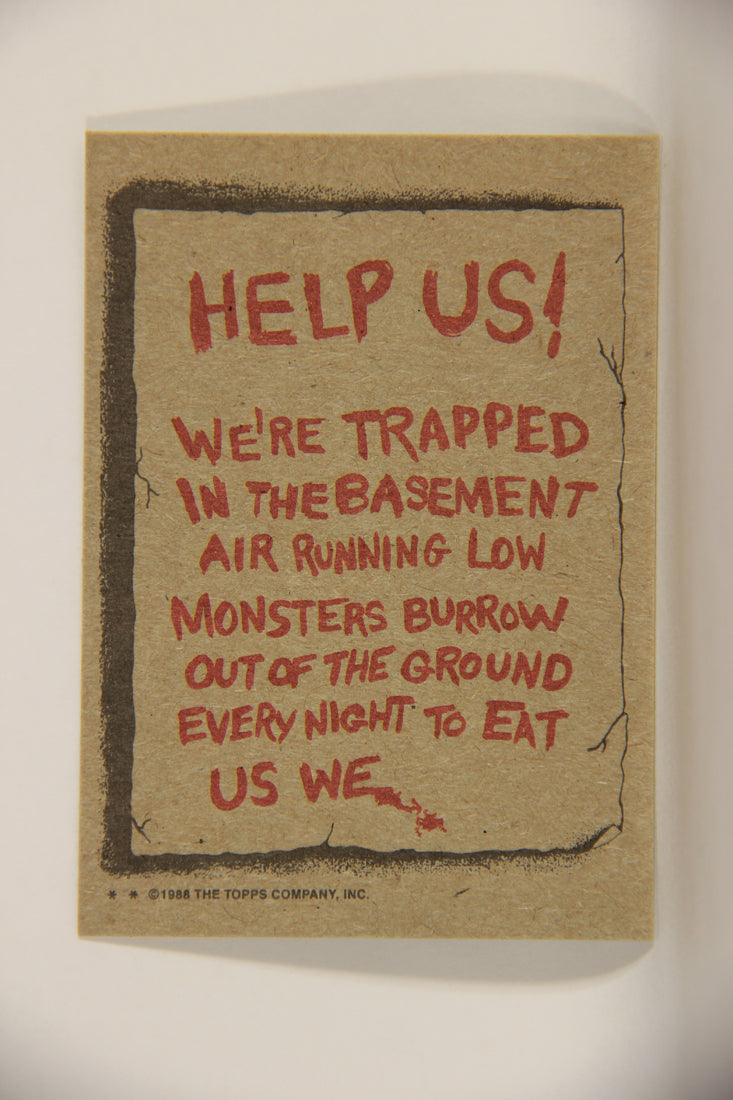 HELP US!
WE'RE TRAPPED
IN THE BASEMENT
AIR RUNNING LOW
MONSTERS BURROW
OUT OF THE GROUND
EVERY NIGHT TO EAT
US WE
* * ©1988 THE TOPPS COMPANY, INC.